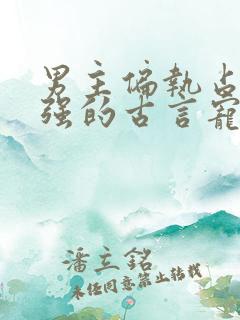 男主偏执占
强的古言宠
潘立铭
未经同意禁止转载